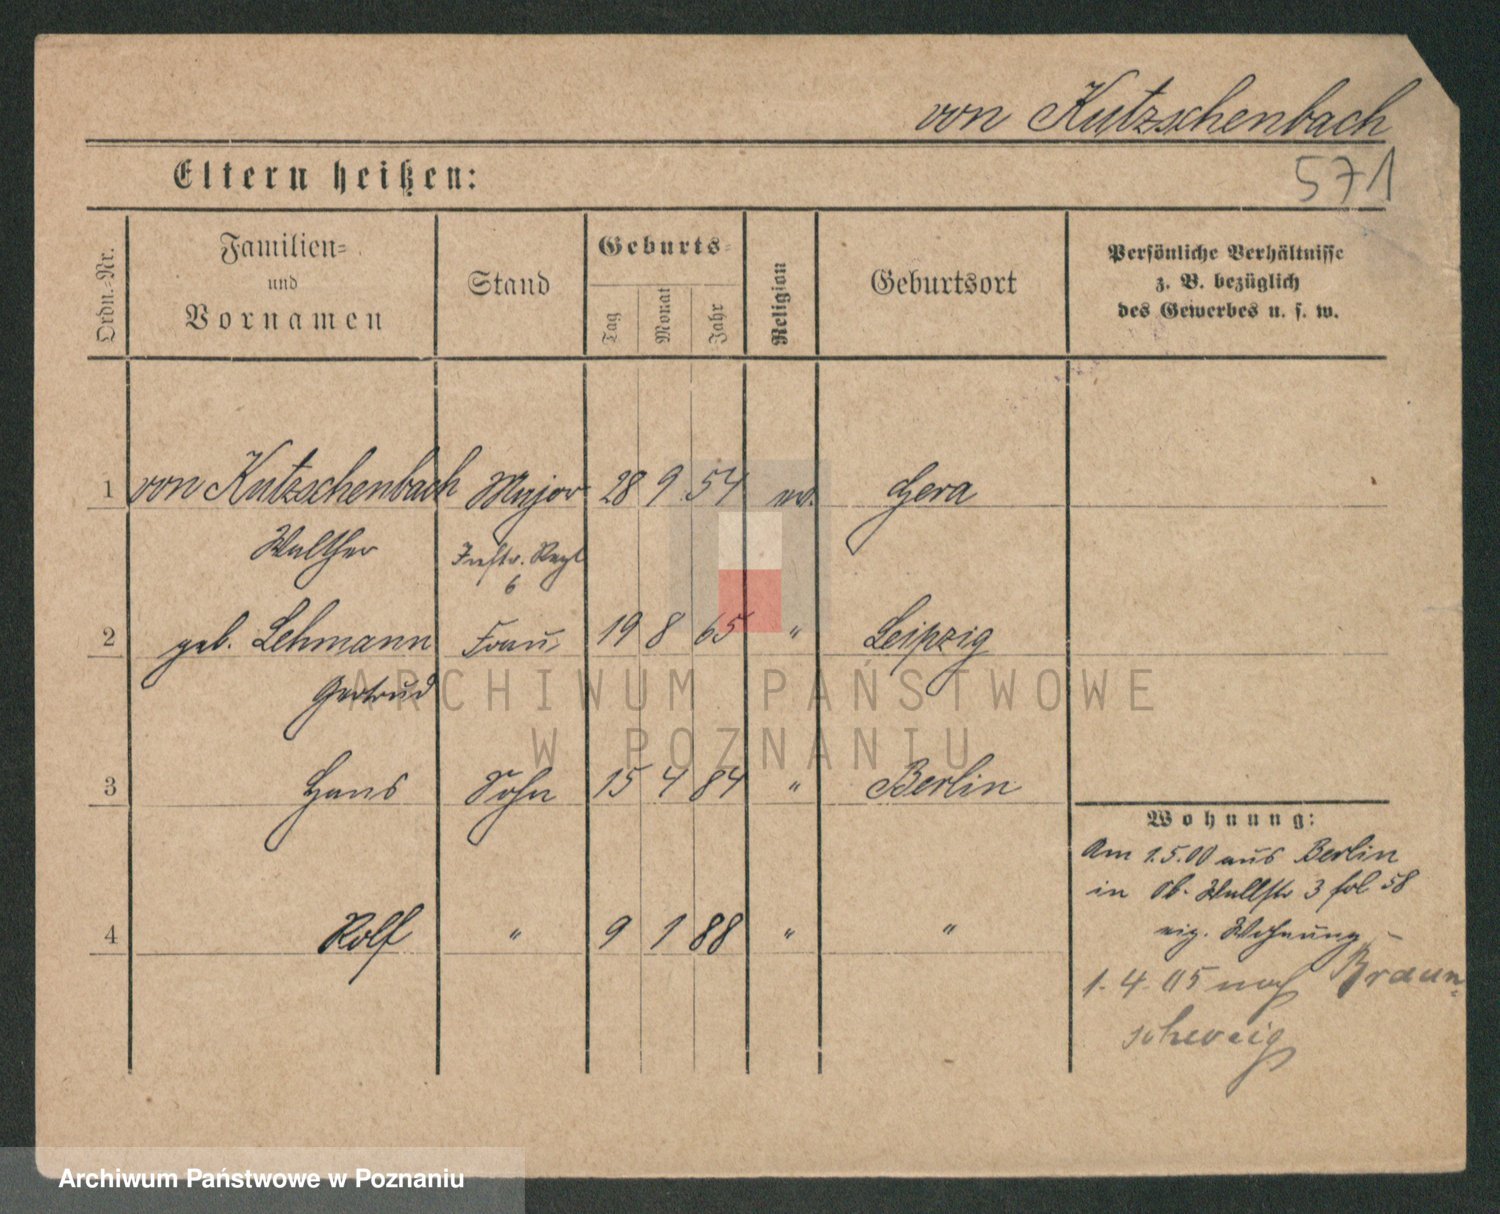 von Kutzschenbach
571
Eltern heißen:
Ordn.-Nr.
Familien-
und
Vornamen
Stand
Geburts-
Tag
Monat
Jahr
Religion
Geburtsort
Persönliche Verhältnisse
z. B. bezüglich
des Gewerbes u. s. w.
1 von Kutzschenbach Major 28 9 54 ev. Gera
Walther Inftr. Regt
6
2 geb. Lehmann Frau 19 8 65 " Leipzig
Gertrud
3 Hans Sohn 15 4 84 " Berlin
4 Rolf " 9 1 88 " "
Wohnung:
Am 1.5.00 aus Berlin
in Ob. Wallstr 3 fol 58
eig. Wohnung
1.4.05 nach Braun-
schweig
ARCHIWUM PAŃSTWOWE
W POZNANIU
Archiwum Państwowe w Poznaniu